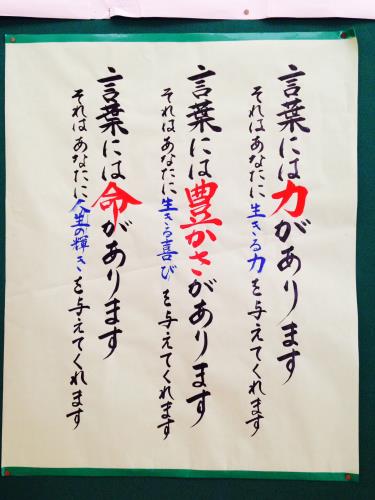 言葉には力があります
それはあなたに生きる力を与えてくれます
言葉には豊かさがあります
それはあなたに生きる喜びを与えてくれます
言葉には命があります
それはあなたに人生の輝きを与えてくれます